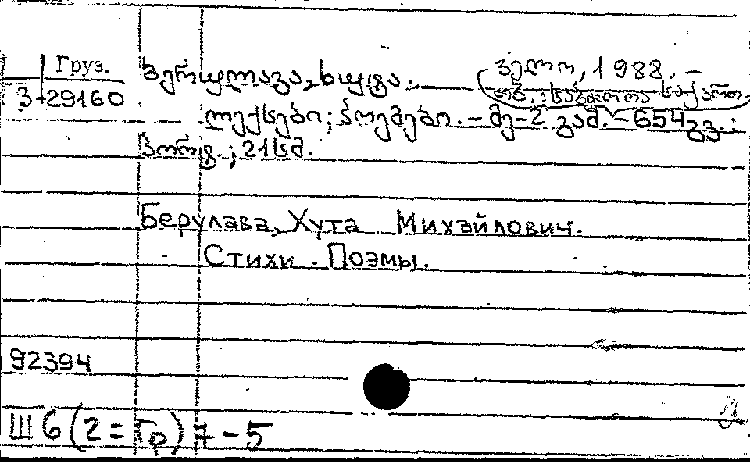 Груз.
3-29160
ბერულავა, ხუტა.
ველო, 1988. –
თბ.: საბჭოთა საქართ.,
ლექსები; პოემები. – მე-2 გამ. – 654გვ.:
პორტ.; 21სმ.
Берулава, Хута Михайлович.
Стихи. Поэмы.
92394
Ш6(2=Гр)7-5